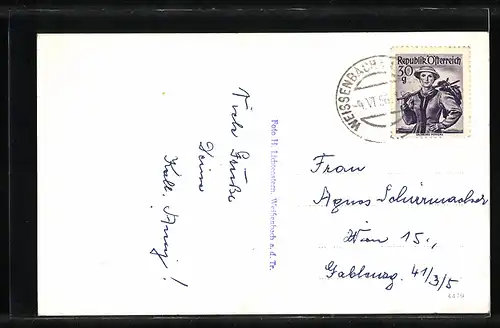 Republik Österreich
30
g
WEISSENBACH
-9.VI.56
Viele Grüße
Deine
Foto H. Lichtenstern, Weißenbach a. d. Tr.
Frau
Agnes Schirrmacher
Wien 15.,
Gablenzg. 41/3/5